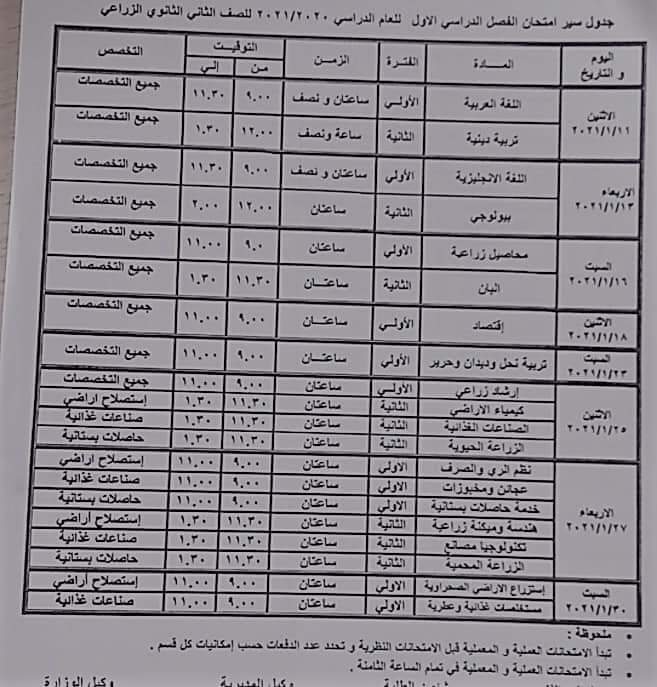 جدول سير امتحان الفصل الدراسي الاول للعام الدراسي ٢٠٢١/٢٠٢٠ للصف الثاني الثانوي الزراعي
اليوم و التاريخ المـــادة الفترة الزمــن التوقيـت من إلي التخصص
الاثنين ٢٠٢١/١/١١ اللغة العربية الأولي ساعتان و نصف ٩.٠٠ ١١.٣٠ جميع التخصصات
تربية دينية الثانية ساعة ونصف ١٢.٠٠ ١.٣٠ جميع التخصصات
الاربعاء ٢٠٢١/١/١٣ اللغة الانجليزية الأولي ساعتان و نصف ٩.٠٠ ١١.٣٠ جميع التخصصات
بيولوجي الثانية ساعتان ١٢.٠٠ ٢.٠٠ جميع التخصصات
السبت ٢٠٢١/١/١٦ محاصيل زراعية الأولي ساعتان ٩.٠ ١١.٠٠ جميع التخصصات
البان الثانية ساعتــان ١١.٣٠ ١.٣٠ جميع التخصصات
الاثنين ٢٠٢١/١/١٨ إقتصاد الأولـي ساعتــان ٩.٠٠ ١١.٠٠ جميع التخصصات
السبت ٢٠٢١/١/٢٣ تربية نحل وديدان وحرير الأولي ساعتــان ٩.٠٠ ١١.٠٠ جميع التخصصات
الاثنين ٢٠٢١/١/٢٥ إرشاد زراعي الأولـي ساعتان ٩.٠٠ ١١.٠٠ جميع التخصصات
كيمياء الاراضي الثانية ساعتان ١١.٣٠ ١.٣٠ إستصلاح اراضي
الصناعات الغذائية الثانية ساعتان ١١.٣٠ ١.٣٠ صناعات غذائية
الزراعة الحيوية الثانية ساعتان ١١.٣٠ ١.٣٠ حاصلات بستانية
الاربعاء ٢٠٢١/١/٢٧ نظم الري والصرف الاولي ساعتان ٩.٠٠ ١١.٠٠ إستصلاح اراضي
عجائن ومخبوزات الاولي ساعتان ٩.٠٠ ١١.٠٠ صناعات غذائية
خدمة حاصلات بستانية الاولي ساعتان ٩.٠٠ ١١.٠٠ حاصلات بستانية
هندسة وميكنة زراعية الثانية ساعتان ١١.٣٠ ١.٣٠ إستصلاح أراضي
تكنولوجيا مصانع الثانية ساعتان ١١.٣٠ ١.٣٠ صناعات غذائية
الزراعة المحمية الثانية ساعتان ١١.٣٠ ١.٣٠ حاصلات بستانية
السبت ٢٠٢١/١/٣٠ إستزراع الاراضي الصحراوية الاولي ساعتان ٩.٠٠ ١١.٠٠ إستصلاح أراضي
مستخلصات غذائية وعطرية الاولي ساعتان ٩.٠٠ ١١.٠٠ صناعات غذائية
ملحوظة :
• تبدأ الامتحانات العملية و المعملية قبل الامتحانات النظرية و تحدد عدد الدفعات حسب إمكانيات كل قسم .
• تبدأ الامتحانات العملية و المعملية في تمام الساعة الثامنة .
شئون الطلبة وكيل المديرية وكيل الوزارة